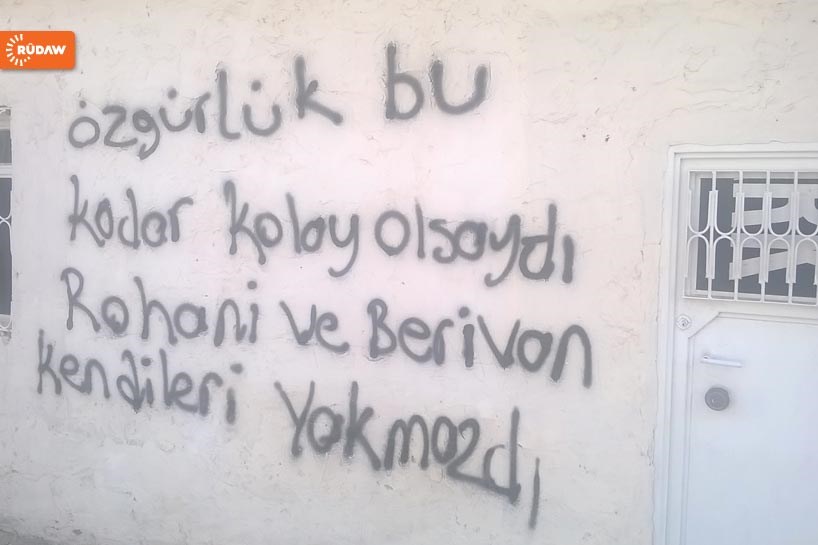 RÛDAW
özgürlük bu
kadar kolay olsaydı
Rohani ve Berivan
kendileri Yakmazdı